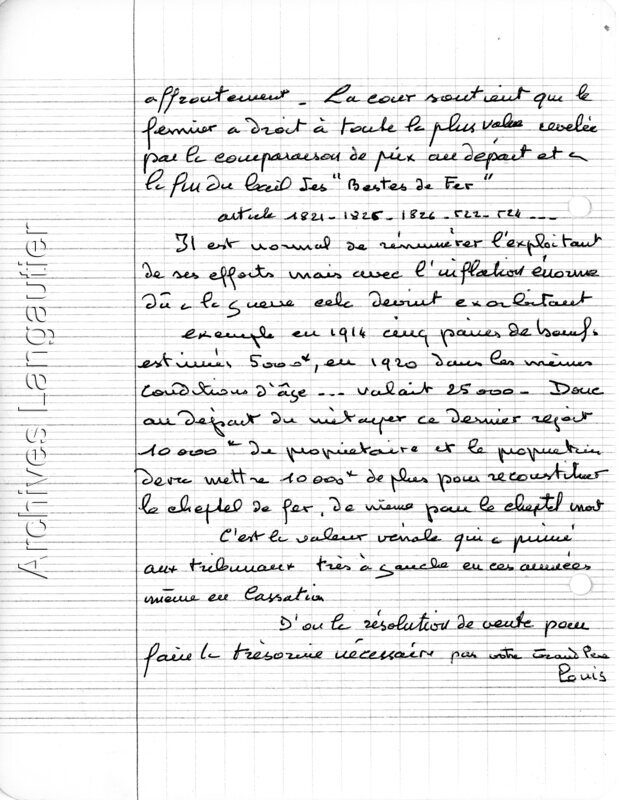 affrontement _ La cour soutient que le
fermier a droit à toute la plus value revelée
par la comparaison de prix au départ et a
la fin du bail des "Bestes de Fer"
article 1821-1825-1826-522-524 ---
Il est normal de rémunérer l'exploitant
de ses efforts mais avec l'inflation énorme
dû a la guerre cela devint exorbitant
exemple en 1914 cinq paires de boeufs
estimées 5000ᶠ, en 1920 dans les mêmes
conditions d'âge --- valait 25000 - Donc
au départ du métayer ce dernier reçoit
10000ᶠ du proprietaire et le proprietaire
devra mettre 10000ᶠ de plus pour reconstituer
le cheptel de fer, de même pour le cheptel mort
C'est la valeur vénale qui a primé
aux tribunaux très à gauche en ces années
même en Cassation
D'ou la résolution de vente pour
faire la trésorerie nécessaire par votre Grand Père
Louis
Archives Langautier